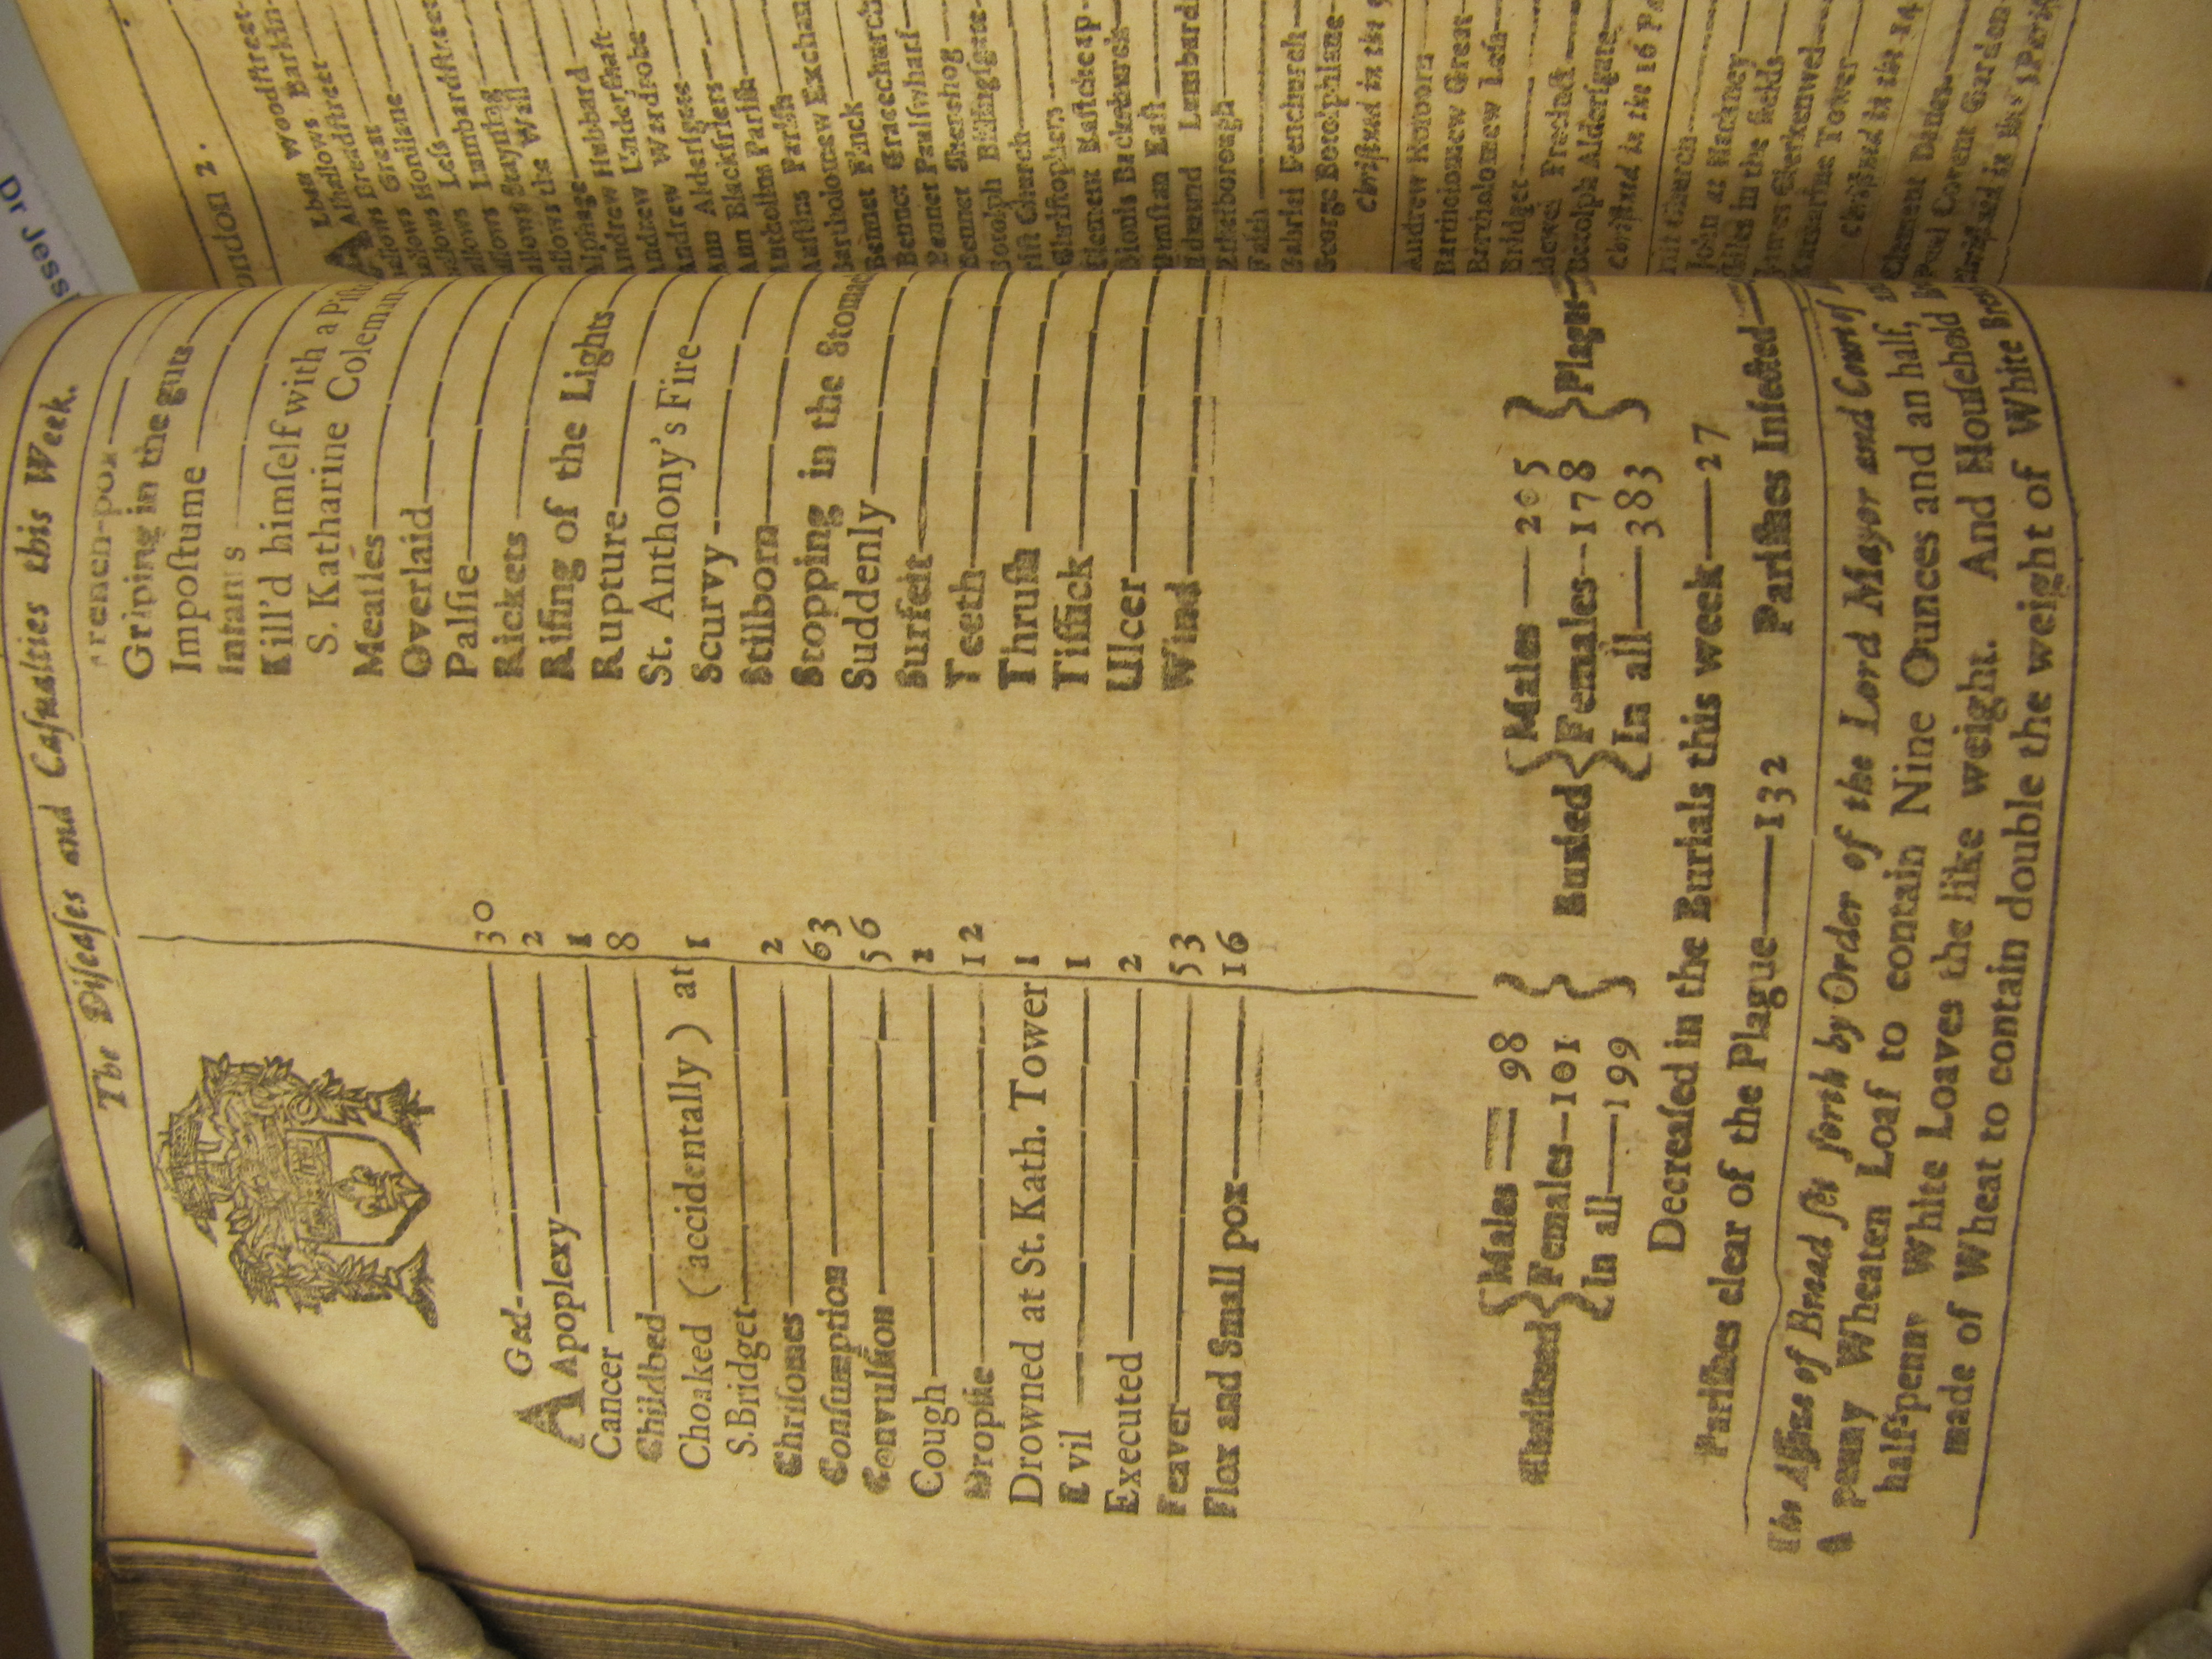 The Diſeaſes and Caſualties this Week.
AGed 30
Apoplexy 2
Cancer 1
Childbed 8
Choaked (accidentally) at
S. Bridget 1
Chriſomes 2
Conſumption 63
Convulſion 56
Cough 2
Dropſie 12
Drowned at St. Kath. Tower 1
Evil 1
Executed 2
Feaver 53
Flox and Small pox 16
French-pox
Griping in the guts
Impoſtume
Infants
Kill'd himſelf with a
S. Katharine Coleman
Meaſles
Overlaid
Palſie
Rickets
Riſing of the Lights
Rupture
St. Anthony's Fire
Scurvy
Stilborn
Stopping in the Stomac
Suddenly
Surfeit
Teeth
Thruſh
Tiſſick
Ulcer
Wind
Chriſtned
Males 98
Females 101
In all 199
Buried
Males 205
Females 178
In all 383
Plague
Decreaſed in the Burials this week 27
Pariſhes clear of the Plague 132 Pariſhes Infected
The Aſſize of Bread ſet forth by Order of the Lord Mayor and Court of
A penny Wheaten Loaf to contain Nine Ounces and an half,
half-penny White Loaves the like weight. And Houſehold
made of Wheat to contain double the weight of White
Dr Jess
ondon 2.
Woodſtreet
Allhallows Barkin
Breadſtreet
Great
Honilane
Leſs
Lumbardſtreet
Stayning
the Wall
Alphage
Andrew Hubbard
Andrew Underſhaft
Andrew Wardrobe
Ann Alderſgate
Ann Blackfriers
Antholins Pariſh
Auſtins Pariſh
Bartholomew Exchan
Bennet Finck
Bennet Gracechurch
Bennet Paulſwharf
Bennet Sherehog
Botolph Billingſgate
riſt Church
Chriſtophers
Clement Eaſtcheap
Dionis Backchurch
Dunſtan Eaſt
Edmund Lumbard
Ethelborough
Faith
Gabriel Fenchurch
George Botolphlane
Chriſtned in the 9
Andrew Holborn
Bartholomew Great
Bartholomew Leſs
Bridget
Precinct
Botolph Alderſgate
Chriſtned in the 16 Pa
Church
John at Hackney
Giles in the fields
James Clerkenwel
Katharine Tower
Chriſtned in the 14
Clement Danes
Paul Covent Garden